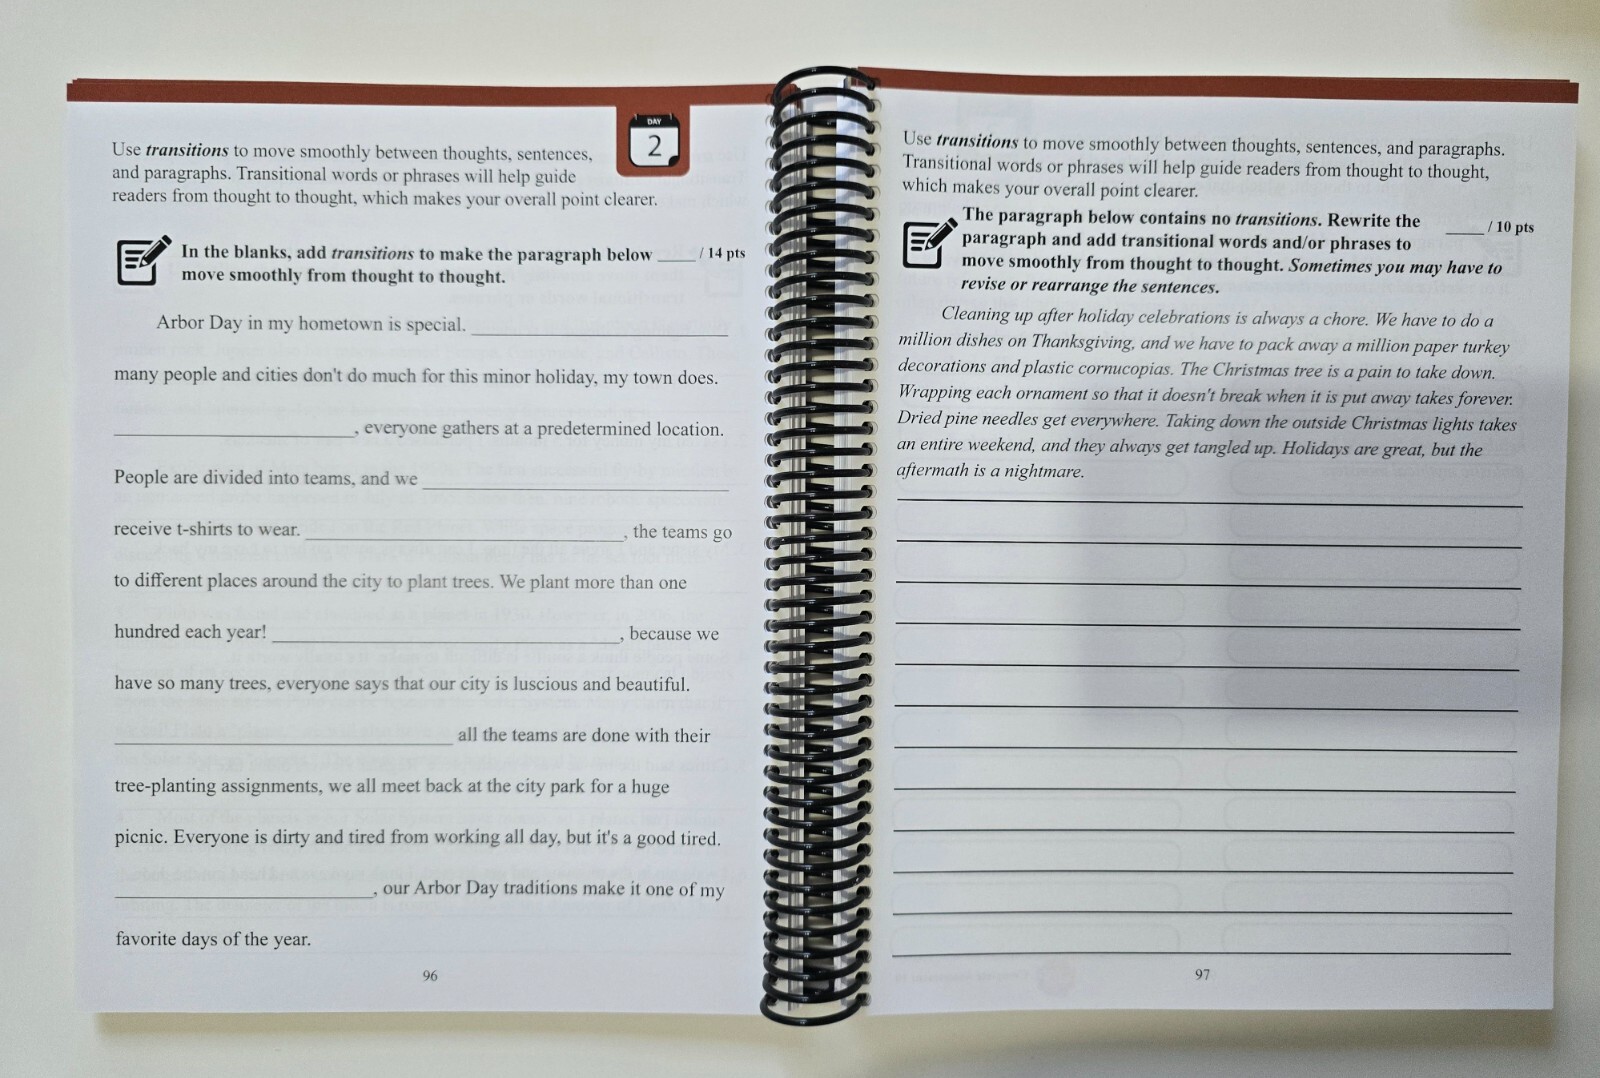 DAY
2
Use transitions to move smoothly between thoughts, sentences,
and paragraphs. Transitional words or phrases will help guide
readers from thought to thought, which makes your overall point clearer.
In the blanks, add transitions to make the paragraph below ____ / 14 pts
move smoothly from thought to thought.
Arbor Day in my hometown is special. ____
many people and cities don't do much for this minor holiday, my town does.
____, everyone gathers at a predetermined location.
People are divided into teams, and we ____
receive t-shirts to wear. ____, the teams go
to different places around the city to plant trees. We plant more than one
hundred each year! ____, because we
have so many trees, everyone says that our city is luscious and beautiful.
____ all the teams are done with their
tree-planting assignments, we all meet back at the city park for a huge
picnic. Everyone is dirty and tired from working all day, but it's a good tired.
____, our Arbor Day traditions make it one of my
favorite days of the year.
96
Use transitions to move smoothly between thoughts, sentences, and paragraphs.
Transitional words or phrases will help guide readers from thought to thought,
which makes your overall point clearer.
The paragraph below contains no transitions. Rewrite the ____ / 10 pts
paragraph and add transitional words and/or phrases to
move smoothly from thought to thought. Sometimes you may have to
revise or rearrange the sentences.
Cleaning up after holiday celebrations is always a chore. We have to do a
million dishes on Thanksgiving, and we have to pack away a million paper turkey
decorations and plastic cornucopias. The Christmas tree is a pain to take down.
Wrapping each ornament so that it doesn't break when it is put away takes forever.
Dried pine needles get everywhere. Taking down the outside Christmas lights takes
an entire weekend, and they always get tangled up. Holidays are great, but the
aftermath is a nightmare.
97